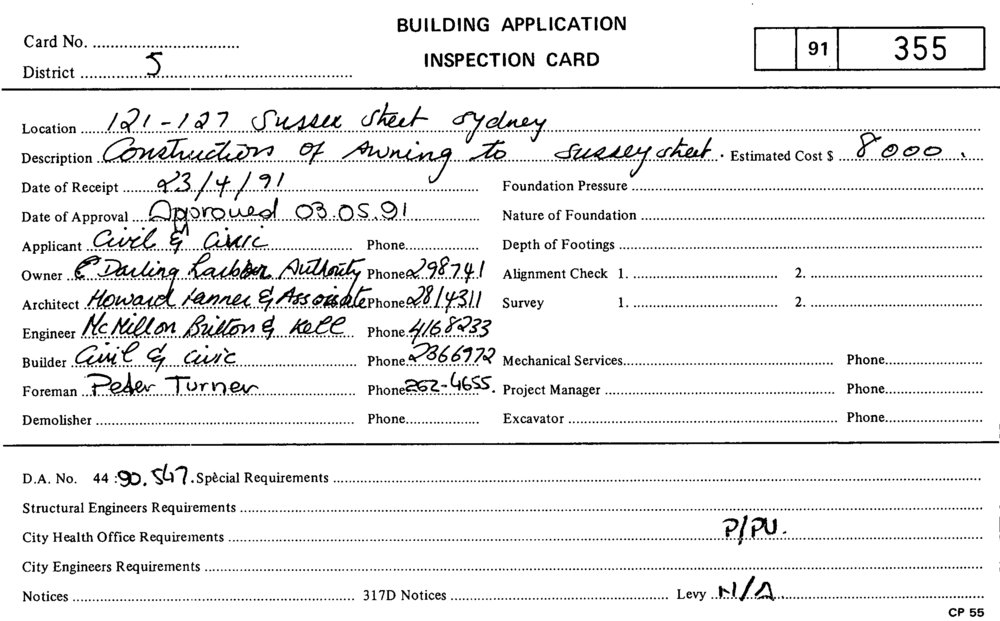 BUILDING APPLICATION
INSPECTION CARD
Card No.
District 5
91 355
Location 121-127 Sussex Street Sydney
Description Construction of Awning to Sussex street. Estimated Cost $ 8000.
Date of Receipt 23/4/91 Foundation Pressure
Date of Approval Approved 03.05.91 Nature of Foundation
Applicant Civil & Civic Phone Depth of Footings
Owner Darling Harbour Authority Phone 298741 Alignment Check 1. 2.
Architect Howard Tanner & Assoicate Phone 2814311 Survey 1. 2.
Engineer McMillon Britton & Kell Phone 4168233
Builder Civil & Civic Phone 2366972 Mechanical Services Phone
Foreman Peter Turner Phone 262-4655. Project Manager Phone
Demolisher Phone Excavator Phone
D.A. No. 44:90.547. Special Requirements
Structural Engineers Requirements
City Health Office Requirements P/PU.
City Engineers Requirements
Notices 317D Notices Levy N/A
CP 55